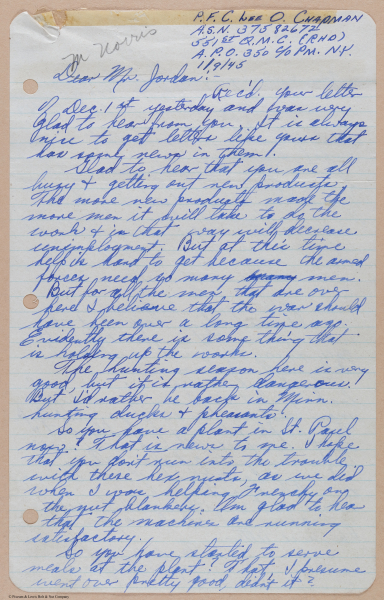 M Norris
P.F.C. Lee O. Chapman
A.S.N. 37582672
551st Q.M.C. (RHD)
A.P.O. 350 c/o P.M. N.Y.
1/9/45
Dear Mr. Jordan:-
Rec'd. your letter
of Dec. 1st yesterday and was very
glad to hear from you. It is always
nice to get letters like yours that
has some news in them!
Glad to hear that you are all
busy & getting out new products.
The more new products made the
more men it will take to do the
work & in that way will decrease
unemployment. But at this time
help is hard to get because the armed
forces need so many many men.
But for all the men that are over
here I believe that the war should
have been over a long time ago.
Evidently there is some thing that
is holding up the works.
The hunting season here is very
good but it is rather dangerous.
But I'd rather be back in Minn.
hunting ducks & pheasants.
So you have a plant in St. Paul
now? That is news to me. I hope
that you don't run into the trouble
with these hex nuts, as we did
when I was helping Frenchy on
the nut blankers. I'm glad to hear
that the machines are running
satisfactory.
So you have started to serve
meals at the plant? That, I presume
went over pretty good, didn't it?
© Dawson & Lewis Bolt & Nut Company